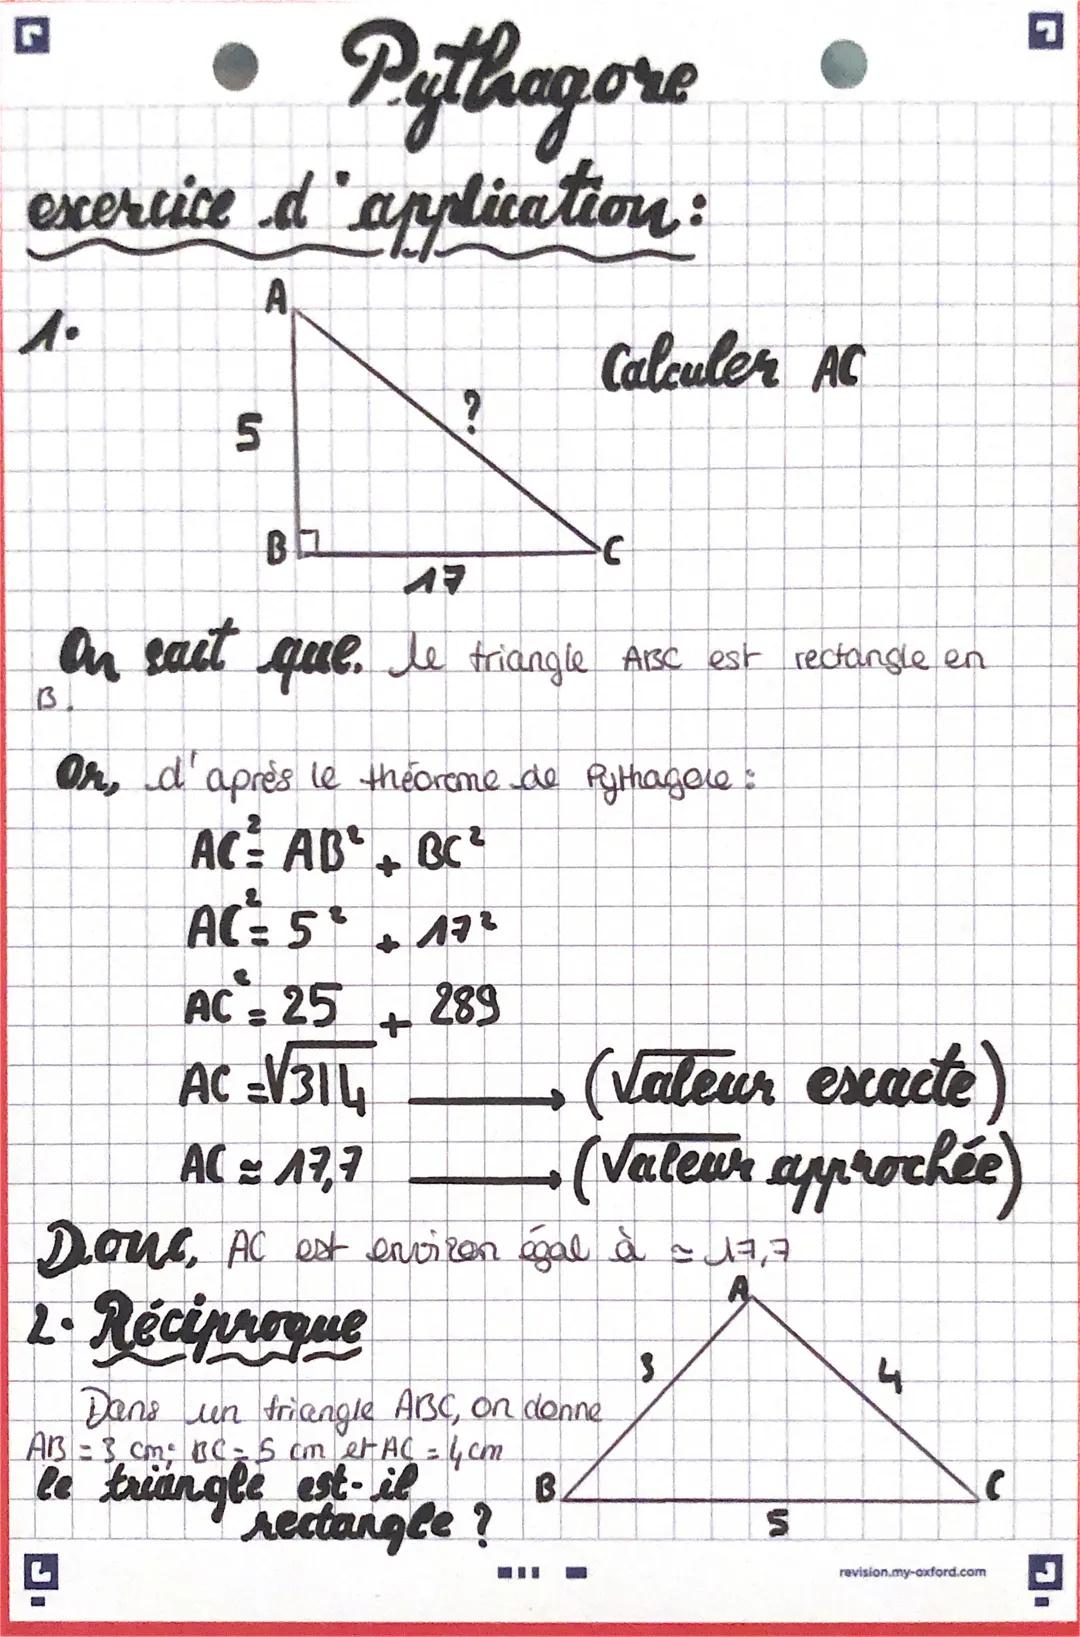 Pythagore
exercice d'application:
1.
A
Calculer AC
?
5
B
C
17
On sait que. le triangle ABC est rectangle en
B.
Or, d'après le théoreme de Pythagore :
AC² = AB² + BC²
AC² = 5² + 17²
AC² = 25 + 289
AC = √314 → (Valeur exacte)
AC ≃ 17,7 → (Valeur approchée)
Donc, AC est environ égal à ≃ 17,7
A
2. Réciproque
3
4
Dans un triangle ABC, on donne
AB = 3 cm; BC = 5 cm et AC = 4 cm
le triangle est-il
rectangle ?
B
C
5
revision.my-oxford.com